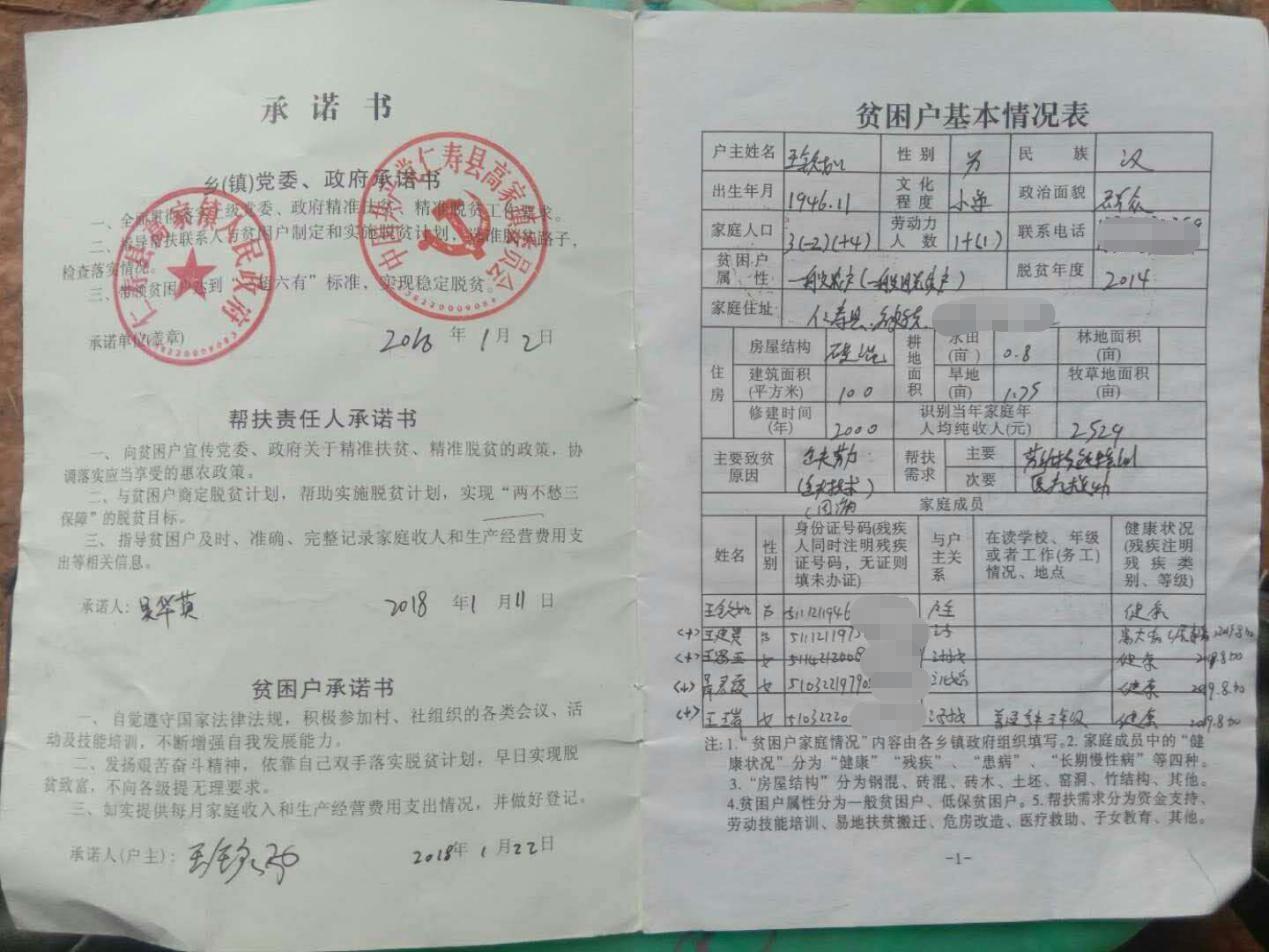 承诺书
乡(镇)党委、政府承诺书
一、全部贯彻落实上级党委、政府精准扶贫、精准脱贫工作要求。
二、指导帮扶联系人与贫困户制定和实施脱贫计划,找准脱贫路子,
检查落实情况。
三、带领贫困户达到“一超六有”标准,实现稳定脱贫。
承诺单位(盖章)
2018年1月2日
仁寿县高家镇人民政府
中国共产党仁寿县高家镇委员会
帮扶责任人承诺书
一、向贫困户宣传党委、政府关于精准扶贫、精准脱贫的政策,协
调落实应当享受的惠农政策。
二、与贫困户商定脱贫计划,帮助实施脱贫计划,实现“两不愁三
保障”的脱贫目标。
三、指导贫困户及时、准确、完整记录家庭收入和生产经营费用支
出等相关信息。
承诺人:吴华英 2018年1月11日
贫困户承诺书
一、自觉遵守国家法律法规,积极参加村、社组织的各类会议、活
动及技能培训,不断增强自我发展能力。
二、发扬艰苦奋斗精神,依靠自己双手落实脱贫计划,早日实现脱
贫致富,不向各级提无理要求。
三、如实提供每月家庭收入和生产经营费用支出情况,并做好登记。
承诺人(户主):
2018年1月22日
贫困户基本情况表
户主姓名 性别 男 民族 汉
出生年月 1946.11 文化程度 小学 政治面貌 群众
家庭人口 3(-2)(+4) 劳动力人数 1+(1) 联系电话
贫困户属性 一般农户(一般脱贫户) 脱贫年度 2014
家庭住址 仁寿县
住房 房屋结构 砖混 耕地面积 水田(亩) 0.8 林地面积(亩)
建筑面积(平方米) 100 旱地(亩) 1.75 牧草地面积(亩)
修建时间(年) 2000 识别当年家庭年人均纯收入(元) 2529
主要致贫原因 缺劳力 (缺技术) (因病 帮扶需求 主要 次要 医疗救助
家庭成员
姓名 性别 身份证号码(残疾人同时注明残疾证号码,无证则填未办证) 与户主关系 在读学校、年级或者工作(务工)情况、地点 健康状况(残疾注明残疾类别、等级)
511121946 户主 健康
(+) 王建 51112197 2019.8.30
(+) 女 5114212008 健康 2019.8.30
(+) 女 5103221979 健康 2019.8.30
(+) 王 女 51032220 健康 2019.8.30
注:1.“贫困户家庭情况”内容由各乡镇政府组织填写。2.家庭成员中的“健
康状况”分为“健康”“残疾”、“患病”、“长期慢性病”等四种。
3.“房屋结构”分为钢混、砖混、砖木、土坯、窑洞、竹结构、其他。
4.贫困户属性分为一般贫困户、低保贫困户。5.帮扶需求分为资金支持、
劳动技能培训、易地扶贫搬迁、危房改造、医疗救助、子女教育、其他。
-1-